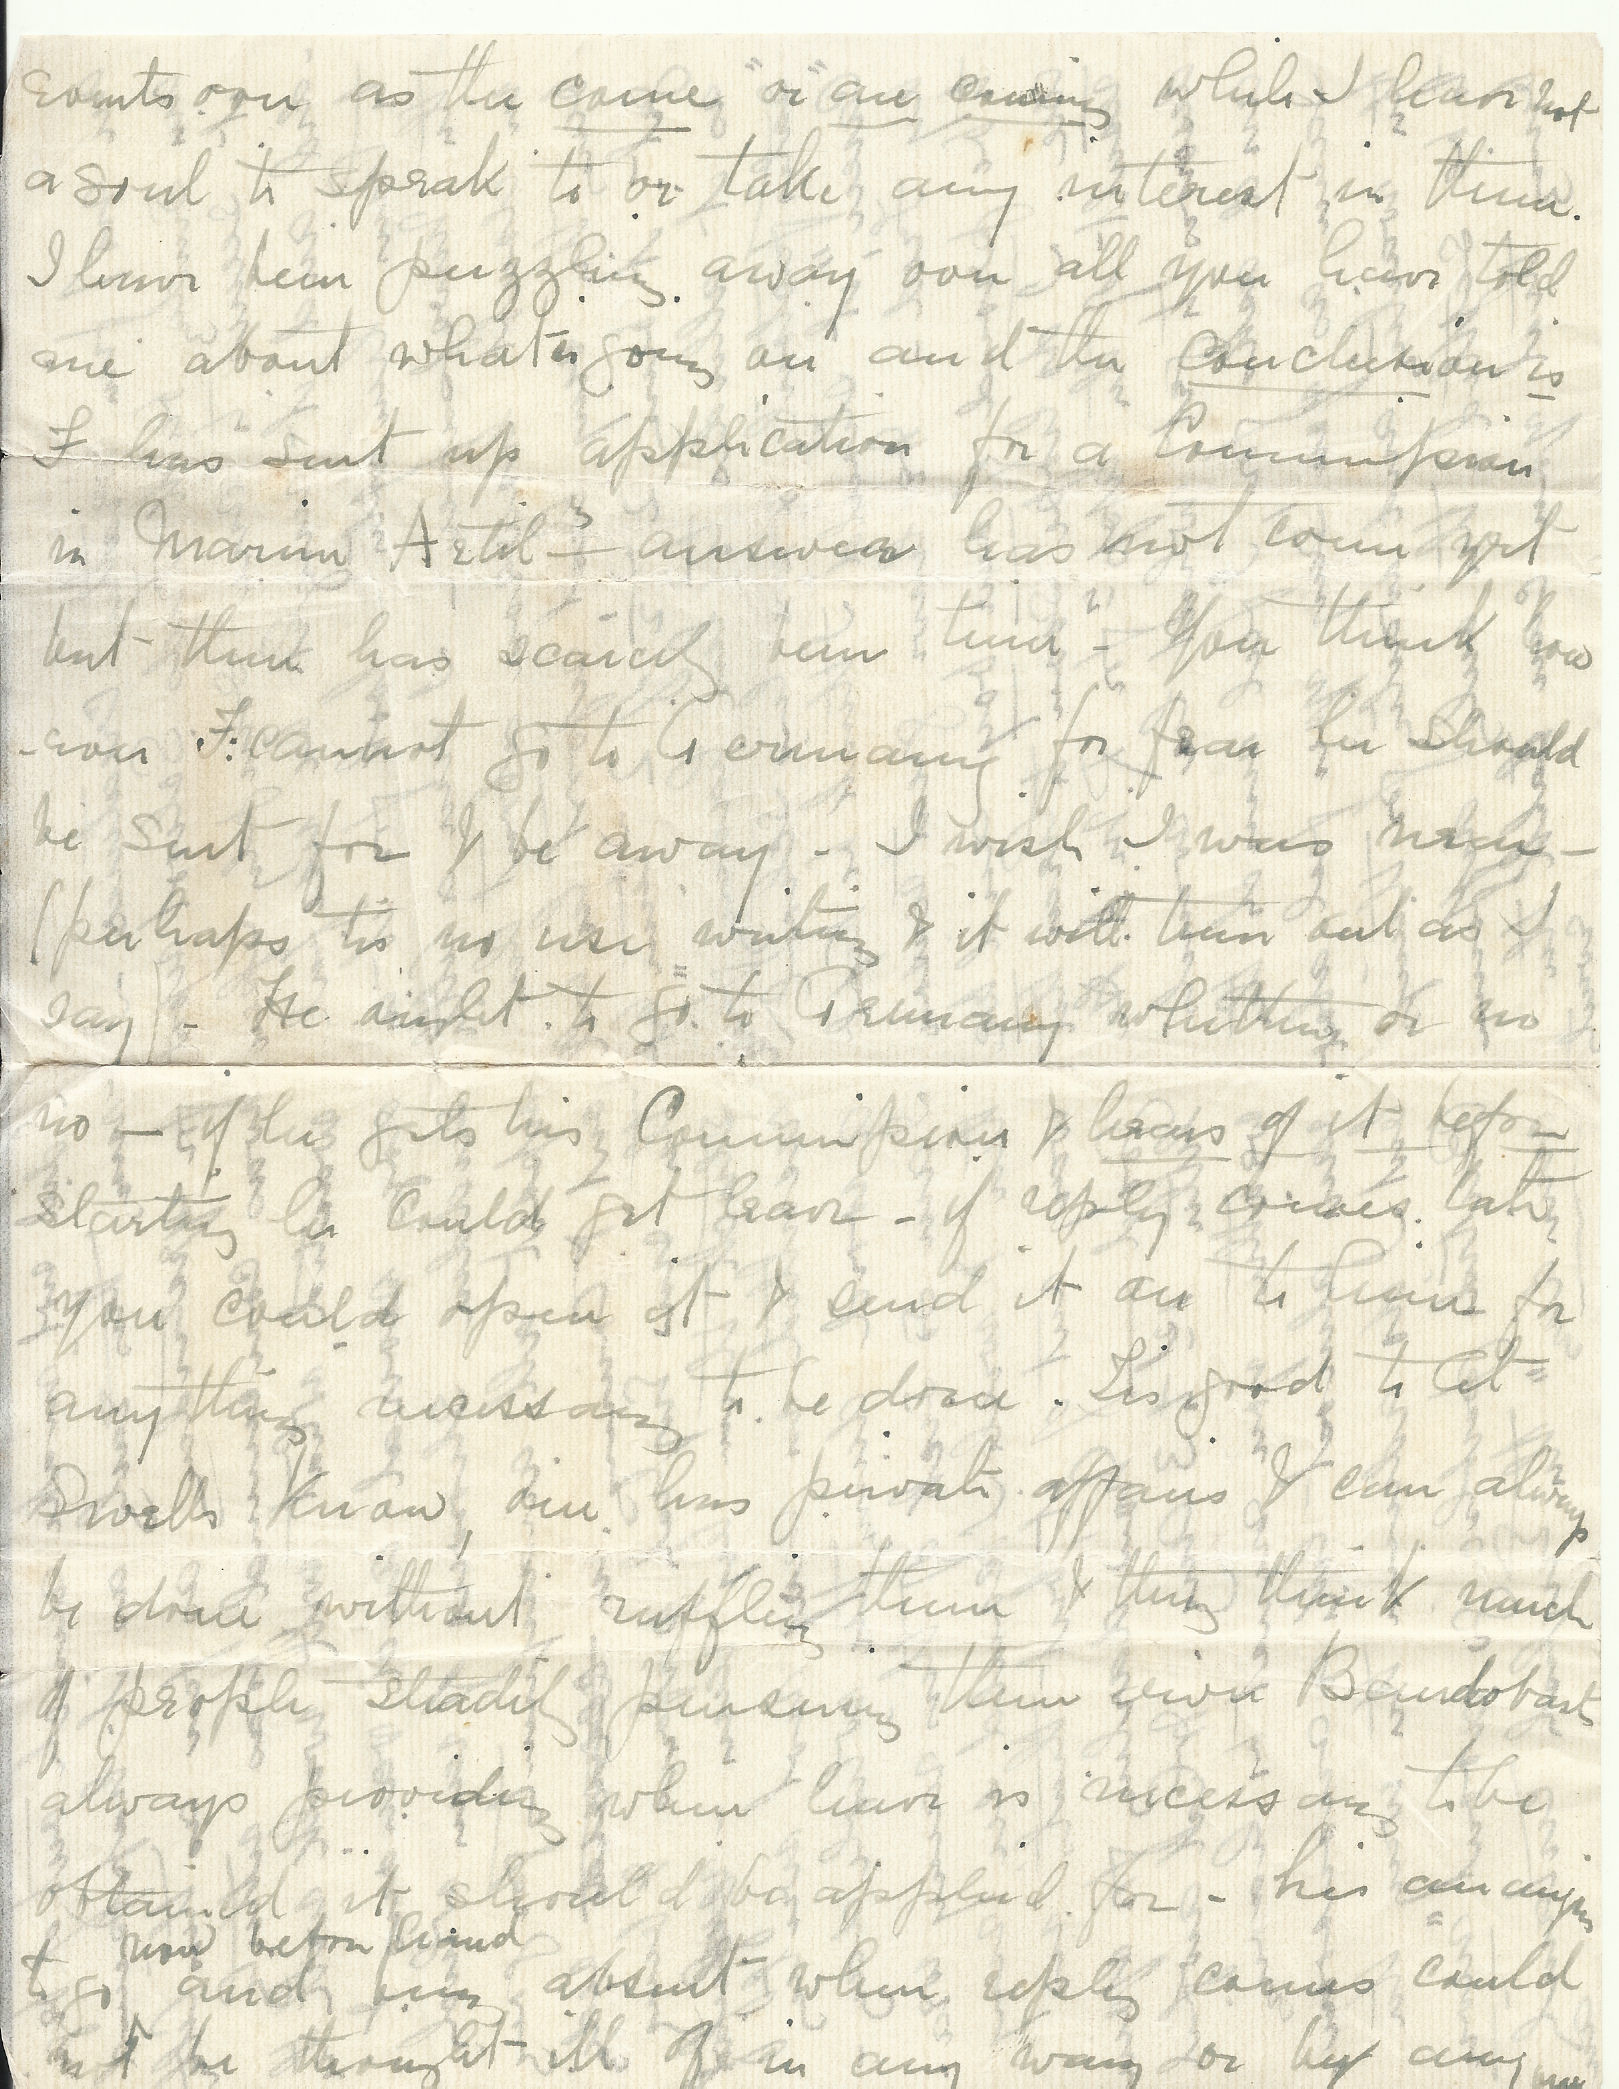 events over as the come "or are coming while I have not
a soul to speak to or take any interest in them.
I have been puzzling away over all you have told
me about what is going on and the conclusion is
F has sent up application for a Commission
in Marine Artily — answer has not come yet
but there has scarcely been time" - You think how
-ever F: cannot go to Germany for fear he should
be sent for & be away - I wish I was near -
(perhaps tis no use writing & it will turn out as I
say) - He ought to go to Germany whether or no
no — if he gets his Commission & hears of it before
starting he could get leave - if reply comes late
you could open it & send it on to him for
anything necessary to be done. Tis good to let
Swells know, one has private affairs & can always
be done without ruffling them & they think much
of people steadily pursuing their own Bandobast
always providing when leave is necessary to be
obtained it should be applied for - his arranging
now before hand
to go and being absent when reply comes could
not be thought ill of in any way or by any one